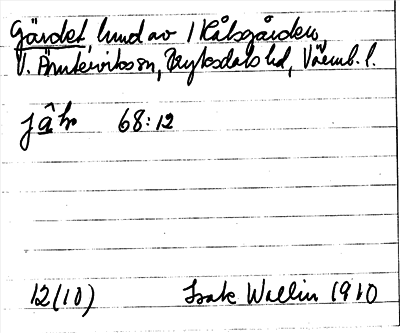 Gärdet, lund av 1 Kålsgården,
V. Ämterviks sn, Fryksdals hd, Värml. l.
jâ̱hr 68:12
12(10) Isak Wallin 1910